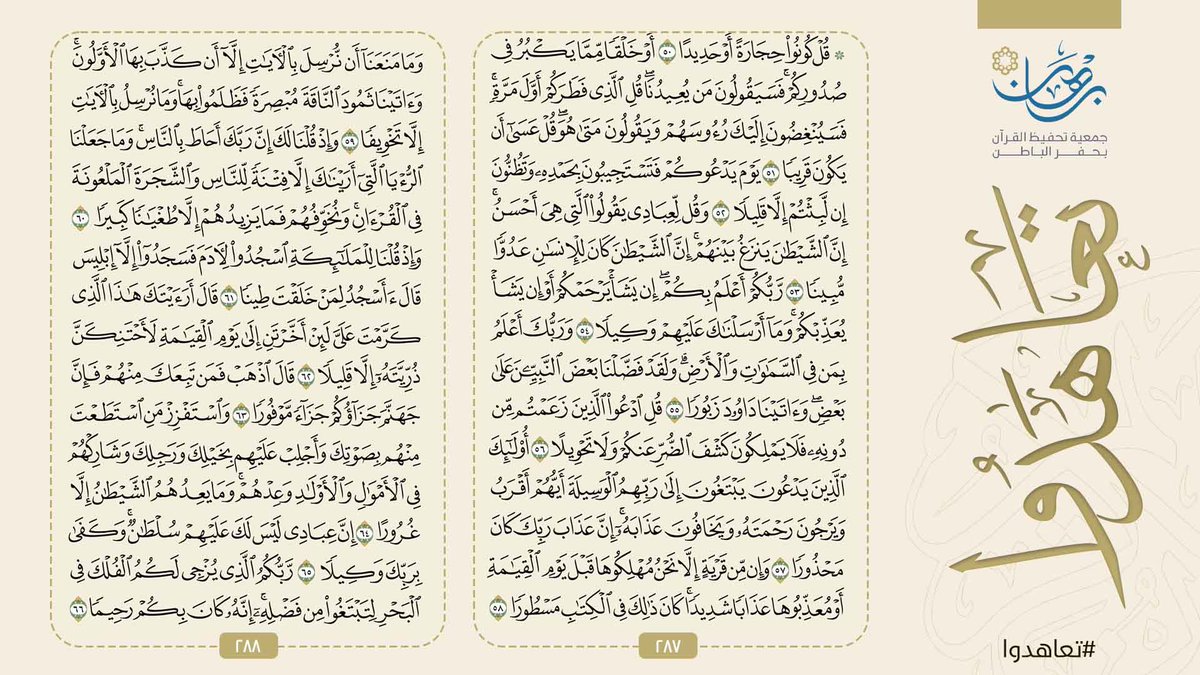 برهان
جمعية تحفيظ القرآن
بحفر الباطن
تعاهدوا
#تعاهدوا
۞ قُلۡ كُونُواْ حِجَارَةً أَوۡ حَدِيدًا ٥٠ أَوۡ خَلۡقٗا مِّمَّا يَكۡبُرُ فِي
صُدُورِكُمۡۚ فَسَيَقُولُونَ مَن يُعِيدُنَاۖ قُلِ ٱلَّذِي فَطَرَكُمۡ أَوَّلَ مَرَّةٖۚ
فَسَيُنۡغِضُونَ إِلَيۡكَ رُءُوسَهُمۡ وَيَقُولُونَ مَتَىٰ هُوَۖ قُلۡ عَسَىٰٓ أَن
يَكُونَ قَرِيبٗا ٥١ يَوۡمَ يَدۡعُوكُمۡ فَتَسۡتَجِيبُونَ بِحَمۡدِهِۦ وَتَظُنُّونَ
إِن لَّبِثۡتُمۡ إِلَّا قَلِيلٗا ٥٢ وَقُل لِّعِبَادِي يَقُولُواْ ٱلَّتِي هِيَ أَحۡسَنُۚ
إِنَّ ٱلشَّيۡطَٰنَ يَنزَغُ بَيۡنَهُمۡۚ إِنَّ ٱلشَّيۡطَٰنَ كَانَ لِلۡإِنسَٰنِ عَدُوّٗا
مُّبِينٗا ٥٣ رَّبُّكُمۡ أَعۡلَمُ بِكُمۡۖ إِن يَشَأۡ يَرۡحَمۡكُمۡ أَوۡ إِن يَشَأۡ
يُعَذِّبۡكُمۡۚ وَمَآ أَرۡسَلۡنَٰكَ عَلَيۡهِمۡ وَكِيلٗا ٥٤ وَرَبُّكَ أَعۡلَمُ
بِمَن فِي ٱلسَّمَٰوَٰتِ وَٱلۡأَرۡضِۗ وَلَقَدۡ فَضَّلۡنَا بَعۡضَ ٱلنَّبِيِّـۧنَ عَلَىٰ
بَعۡضٖۖ وَءَاتَيۡنَا دَاوُۥدَ زَبُورٗا ٥٥ قُلِ ٱدۡعُواْ ٱلَّذِينَ زَعَمۡتُم مِّن
دُونِهِۦ فَلَا يَمۡلِكُونَ كَشۡفَ ٱلضُّرِّ عَنكُمۡ وَلَا تَحۡوِيلًا ٥٦ أُوْلَٰٓئِكَ
ٱلَّذِينَ يَدۡعُونَ يَبۡتَغُونَ إِلَىٰ رَبِّهِمُ ٱلۡوَسِيلَةَ أَيُّهُمۡ أَقۡرَبُ
وَيَرۡجُونَ رَحۡمَتَهُۥ وَيَخَافُونَ عَذَابَهُۥٓۚ إِنَّ عَذَابَ رَبِّكَ كَانَ
مَحۡذُورٗا ٥٧ وَإِن مِّن قَرۡيَةٍ إِلَّا نَحۡنُ مُهۡلِكُوهَا قَبۡلَ يَوۡمِ ٱلۡقِيَٰمَةِ
أَوۡ مُعَذِّبُوهَا عَذَابٗا شَدِيدٗاۚ كَانَ ذَٰلِكَ فِي ٱلۡكِتَٰبِ مَسۡطُورٗا ٥٨
٢٨٧
وَمَا مَنَعَنَآ أَن نُّرۡسِلَ بِٱلۡأٓيَٰتِ إِلَّآ أَن كَذَّبَ بِهَا ٱلۡأَوَّلُونَۚ
وَءَاتَيۡنَا ثَمُودَ ٱلنَّاقَةَ مُبۡصِرَةٗ فَظَلَمُواْ بِهَاۚ وَمَا نُرۡسِلُ بِٱلۡأٓيَٰتِ
إِلَّا تَخۡوِيفٗا ٥٩ وَإِذۡ قُلۡنَا لَكَ إِنَّ رَبَّكَ أَحَاطَ بِٱلنَّاسِۚ وَمَا جَعَلۡنَا
ٱلرُّءۡيَا ٱلَّتِيٓ أَرَيۡنَٰكَ إِلَّا فِتۡنَةٗ لِّلنَّاسِ وَٱلشَّجَرَةَ ٱلۡمَلۡعُونَةَ
فِي ٱلۡقُرۡءَانِۚ وَنُخَوِّفُهُمۡ فَمَا يَزِيدُهُمۡ إِلَّا طُغۡيَٰنٗا كَبِيرٗا ٦٠
وَإِذۡ قُلۡنَا لِلۡمَلَٰٓئِكَةِ ٱسۡجُدُواْ لِأٓدَمَ فَسَجَدُوٓاْ إِلَّآ إِبۡلِيسَ
قَالَ ءَأَسۡجُدُ لِمَنۡ خَلَقۡتَ طِينٗا ٦١ قَالَ أَرَءَيۡتَكَ هَٰذَا ٱلَّذِي
كَرَّمۡتَ عَلَيَّ لَئِنۡ أَخَّرۡتَنِ إِلَىٰ يَوۡمِ ٱلۡقِيَٰمَةِ لَأَحۡتَنِكَنَّ
ذُرِّيَّتَهُۥٓ إِلَّا قَلِيلٗا ٦٢ قَالَ ٱذۡهَبۡ فَمَن تَبِعَكَ مِنۡهُمۡ فَإِنَّ
جَهَنَّمَ جَزَآؤُكُمۡ جَزَآءٗ مَّوۡفُورٗا ٦٣ وَٱسۡتَفۡزِزۡ مَنِ ٱسۡتَطَعۡتَ
مِنۡهُم بِصَوۡتِكَ وَأَجۡلِبۡ عَلَيۡهِم بِخَيۡلِكَ وَرَجِلِكَ وَشَارِكۡهُمۡ
فِي ٱلۡأَمۡوَٰلِ وَٱلۡأَوۡلَٰدِ وَعِدۡهُمۡۚ وَمَا يَعِدُهُمُ ٱلشَّيۡطَٰنُ إِلَّا
غُرُورًا ٦٤ إِنَّ عِبَادِي لَيۡسَ لَكَ عَلَيۡهِمۡ سُلۡطَٰنٞۚ وَكَفَىٰ
بِرَبِّكَ وَكِيلٗا ٦٥ رَّبُّكُمُ ٱلَّذِي يُزۡجِي لَكُمُ ٱلۡفُلۡكَ فِي
ٱلۡبَحۡرِ لِتَبۡتَغُواْ مِن فَضۡلِهِۦٓۚ إِنَّهُۥ كَانَ بِكُمۡ رَحِيمٗا ٦٦
٢٨٨